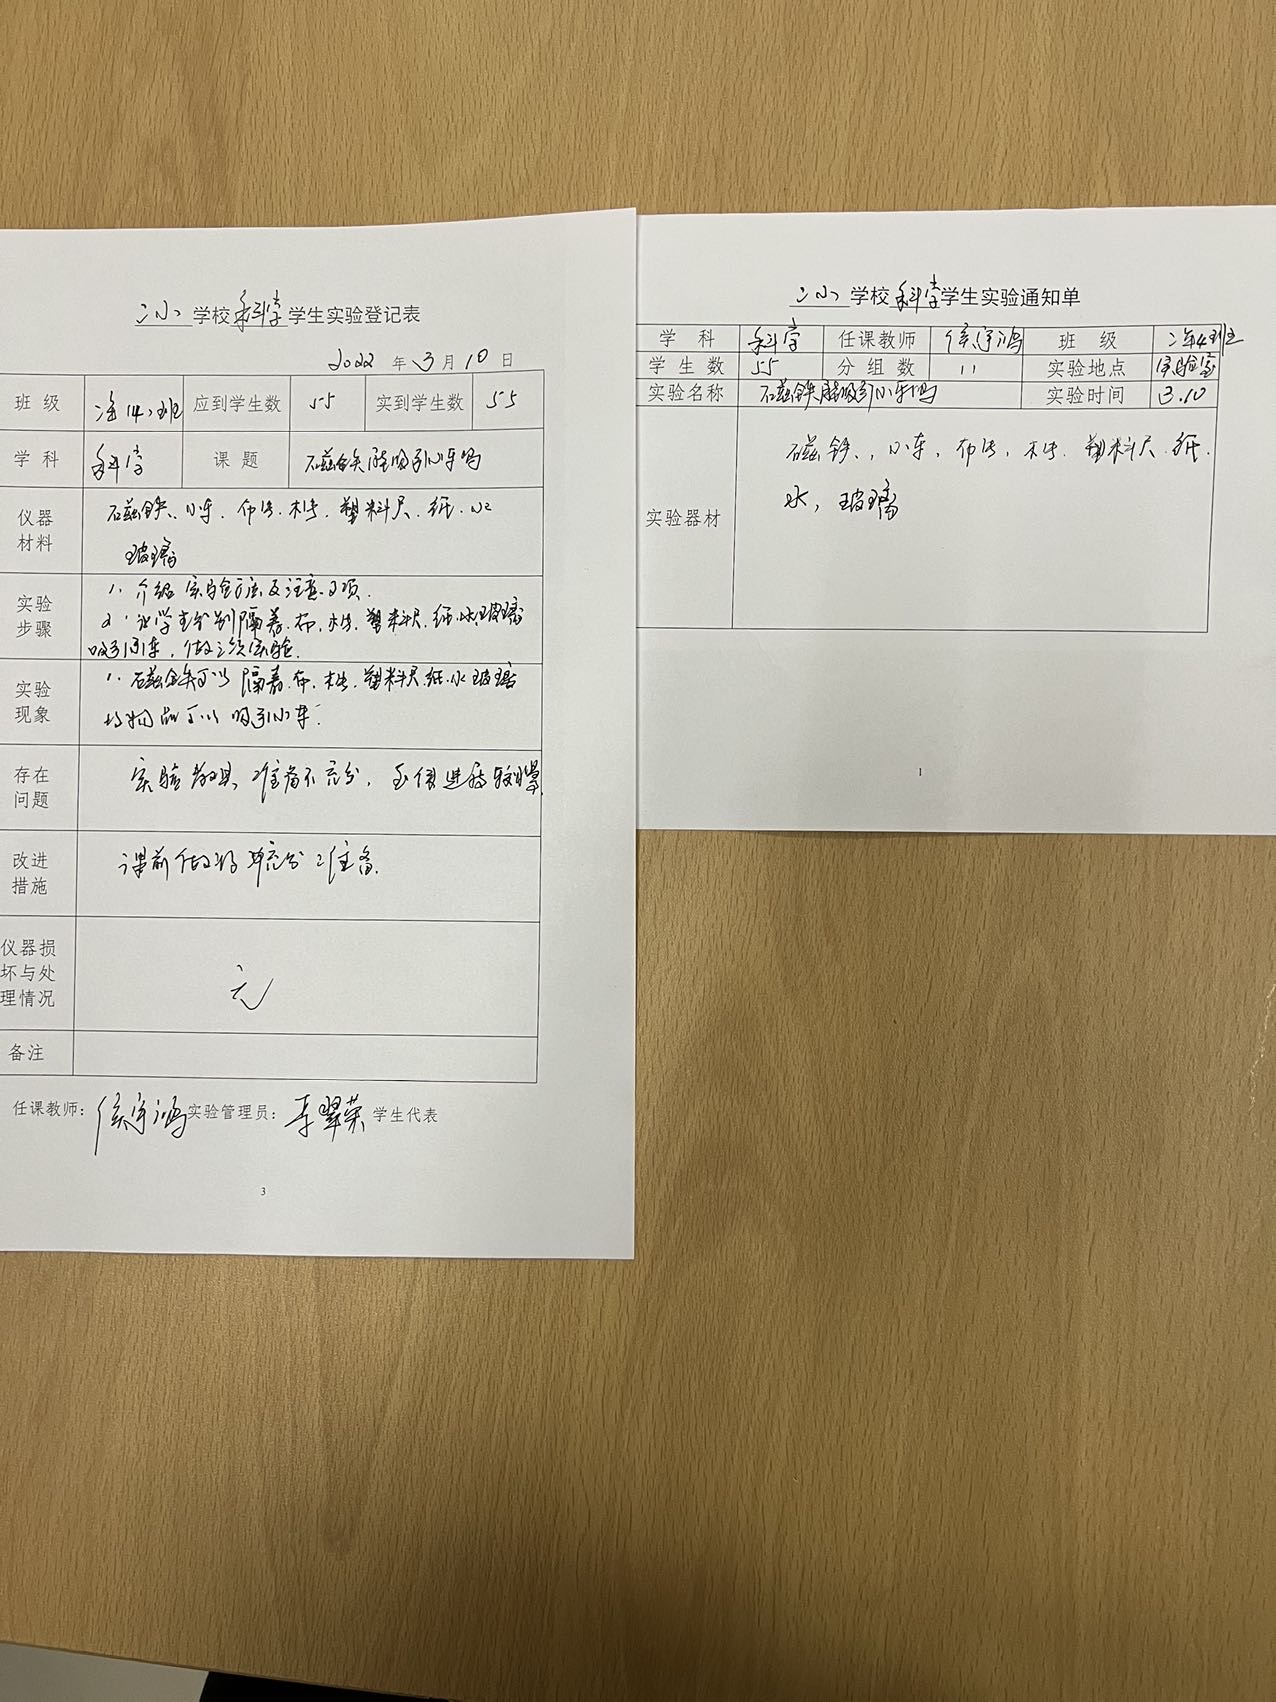 二小学校科学学生实验登记表
2022年3月10日
班级 二年(4)班 应到学生数 55 实到学生数 55
学科 科学 课题 磁铁能吸引小车吗
仪器材料 磁铁、小车、布片、木片、塑料尺、纸、水
玻璃
实验步骤 1、介绍实验方法及注意事项.
2、让学生分别隔着.布、木片、塑料尺、纸、水、玻璃
吸引小车,做三次实验.
实验现象 1、磁铁可以隔着.布、木片、塑料尺.纸.水.玻璃
物品可以吸引小车.
存在问题 实验教具准备不充分,至使进程较慢
改进措施 课前做好充分准备.
仪器损坏与处理情况 无
备注
任课教师: 侯宇鸿 实验管理员: 李翠荣 学生代表
3
二小学校科学学生实验通知单
学科 科学 任课教师 侯宇鸿 班级 二年4班
学生数 55 分组数 11 实验地点 实验室
实验名称 磁铁能吸引小车吗 实验时间 3.10
实验器材 磁铁、小车,布片,木片.塑料尺.纸.
水,玻璃
1